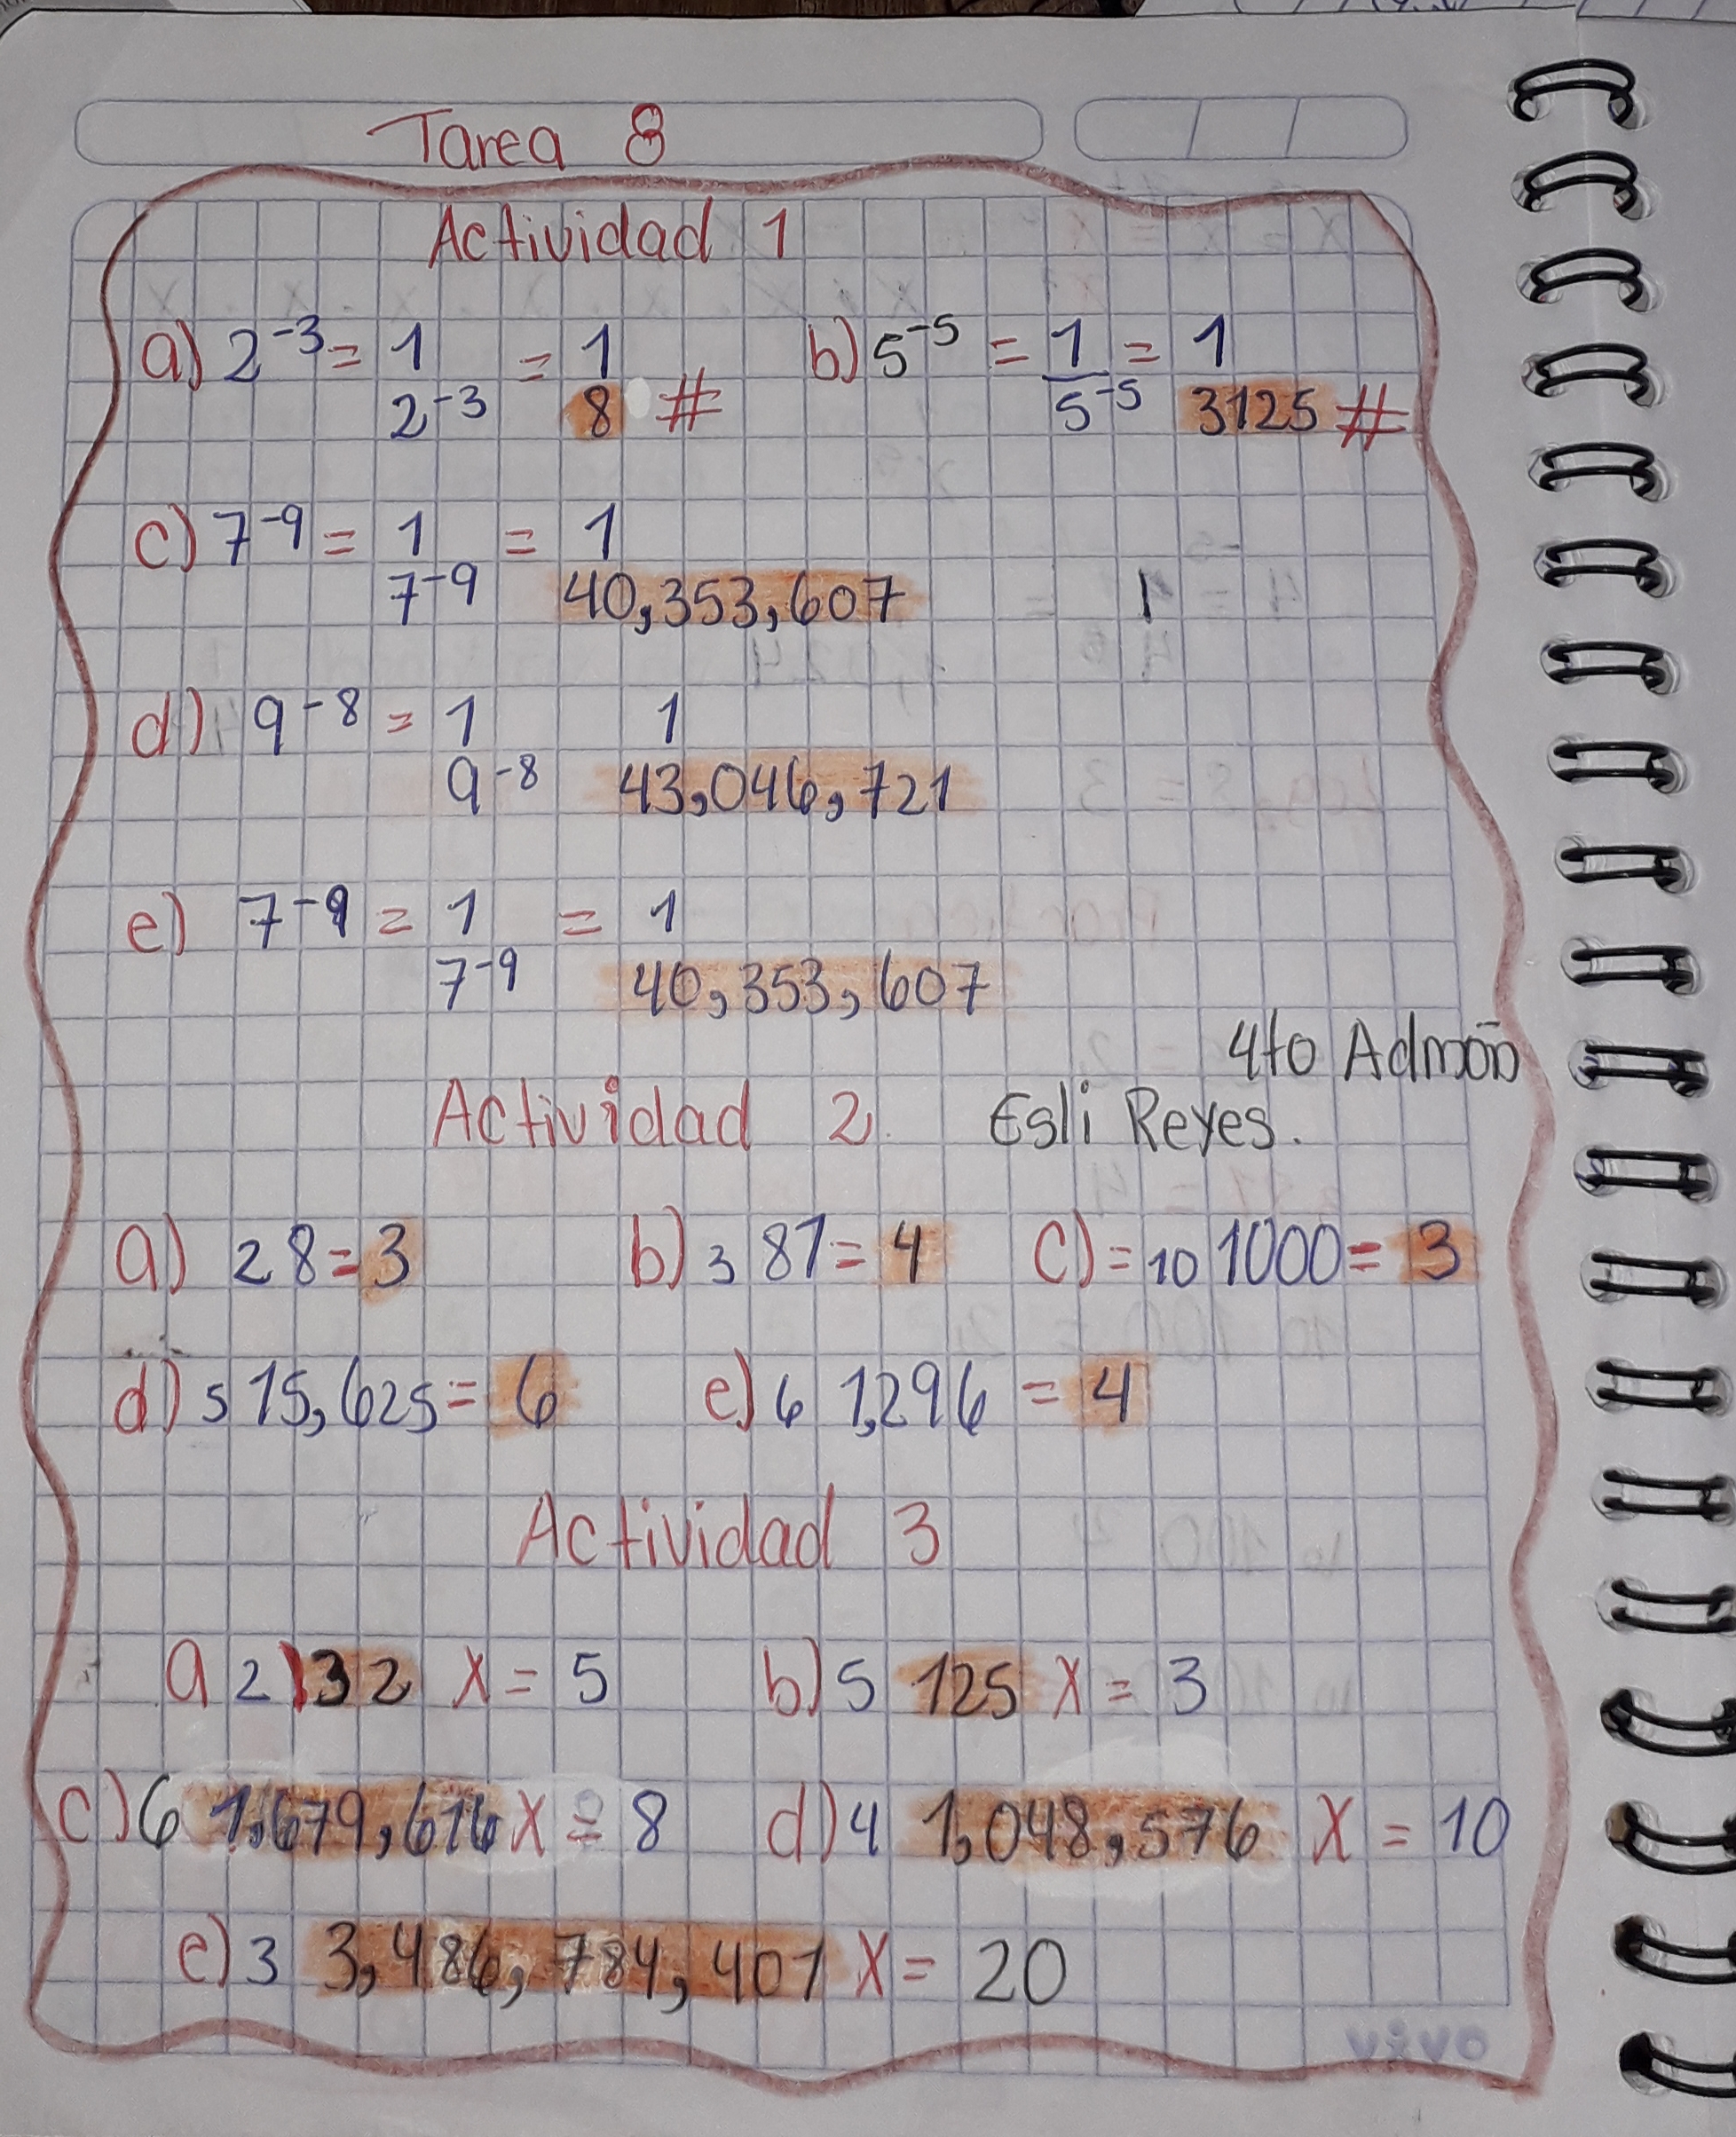 Tarea 8
Actividad 1
a) 2⁻³ = 1 = 1 b) 5⁻⁵ = 1 = 1
2⁻³ 8 # 5⁻⁵ 3125 #
c) 7⁻⁹ = 1 = 1
7⁻⁹ 40,353,607
d) 9⁻⁸ = 1 1
9⁻⁸ 43,046,721
e) 7⁻⁹ = 1 = 1
7⁻⁹ 40,353,607
4to Admón
Actividad 2. Esli Reyes.
a) 2 8 = 3 b) 3 81 = 4 c) = 10 1000 = 3
d) 5 15,625 = 6 e) 6 1,296 = 4
Actividad 3
a 2) 32 X = 5 b) 5 125 X = 3
c) 6 1,679,616 X = 8 d) 4 1,048,576 X = 10
e) 3 3,486,784,401 X = 20
vivo